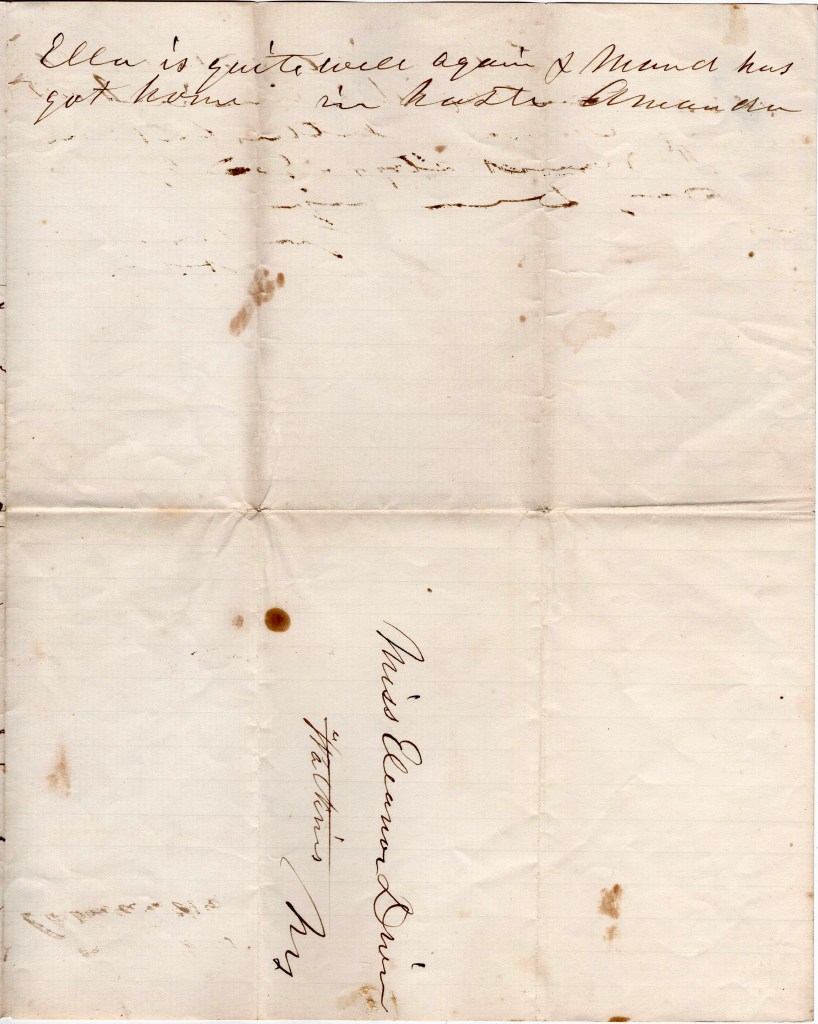 Ella is quite well again & Maud has
got home in haste Amanda
Miss Eleanor
Watkins
NY